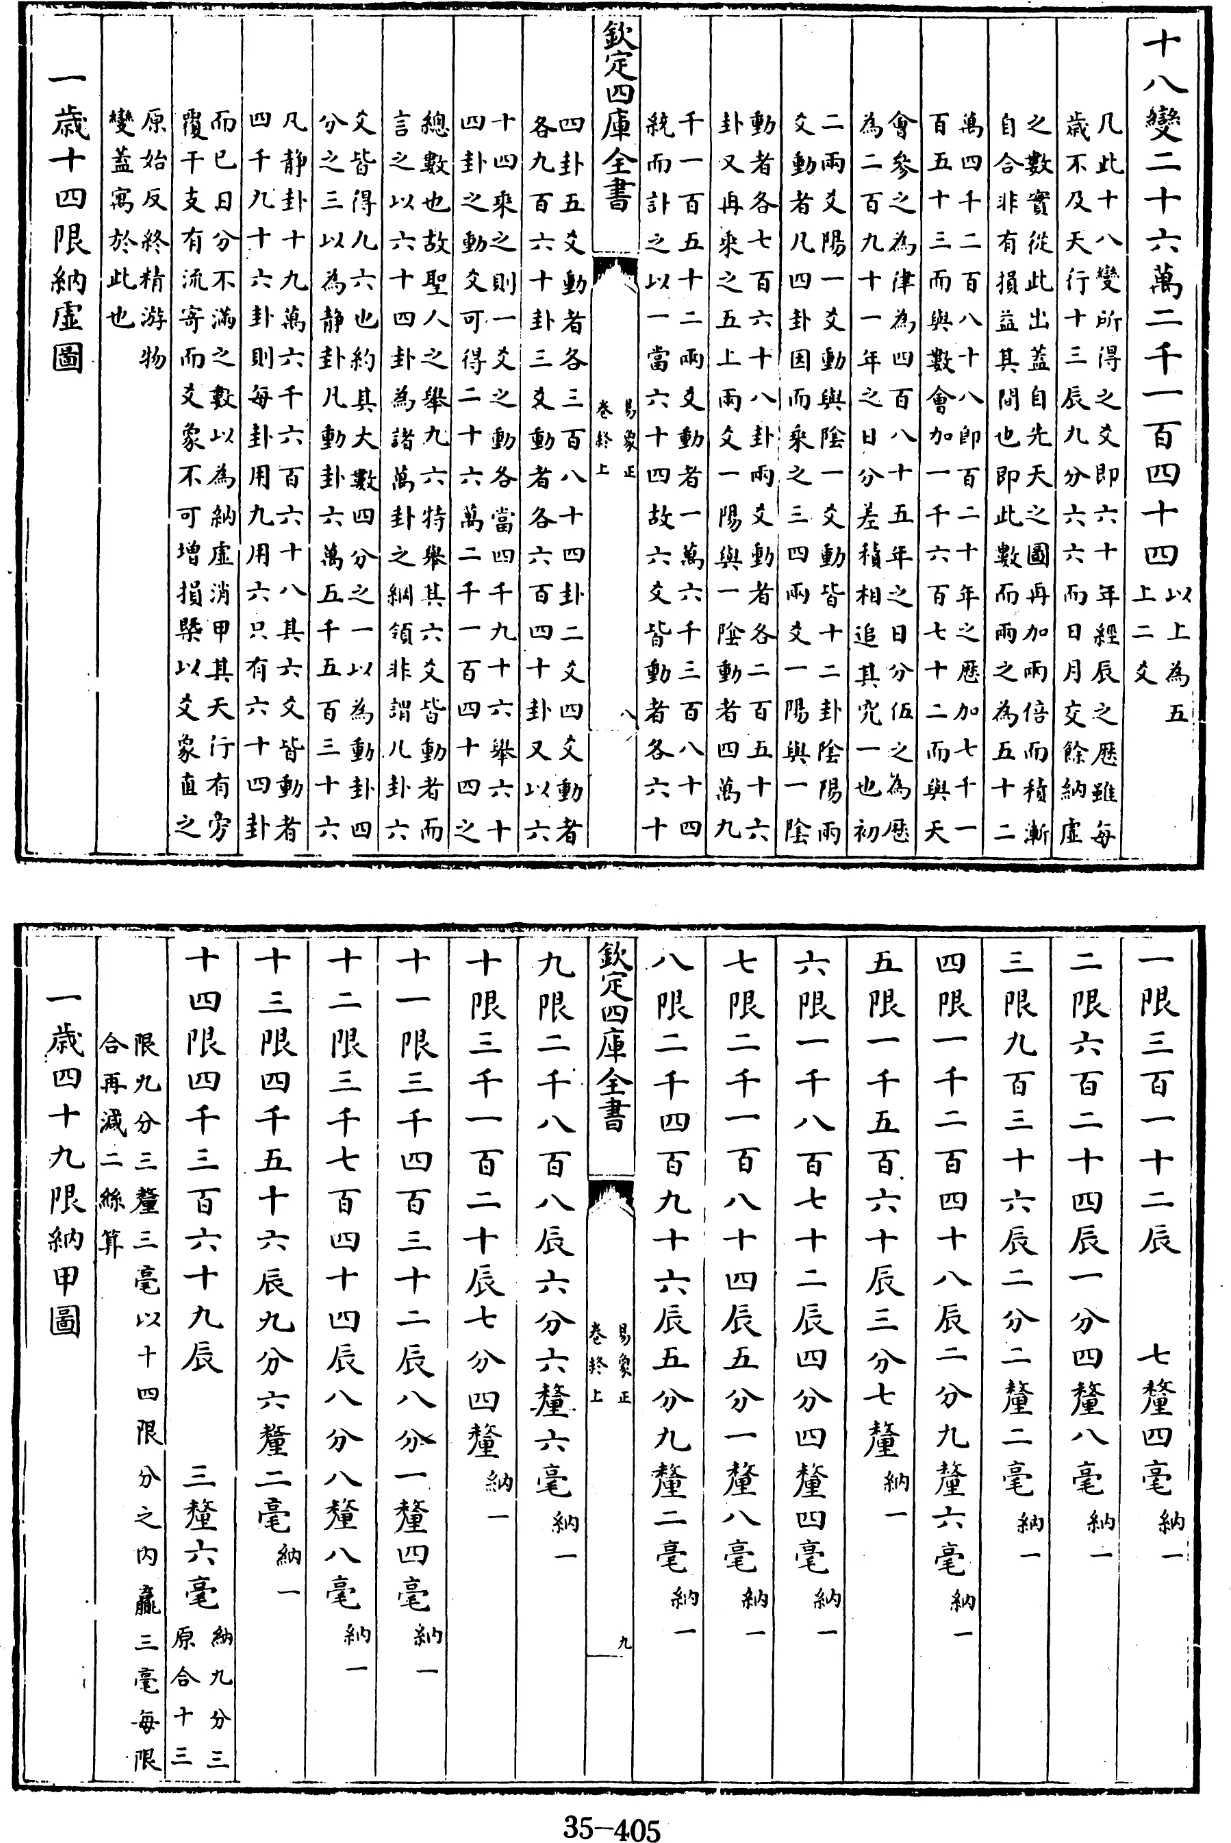 十八變二十六萬二千一百四十四以上為五
上二爻
凡此十八變所得之爻即六十年經辰之歷雖每
歲不及天行十三辰九分六六而日月交餘納虛
之數實從此出蓋自先天之圖再加兩倍而積漸
自合非有損益其間也即此數而兩之為五十二
萬四千二百八十八即百二十年之歷加七千一
百五十三而與數會加一千六百七十二而與天
會參之為律為四百八十五年之日分伍之為歷
為二百九十一年之日分差積相追其究一也初
二兩爻陽一爻動與陰一爻動皆十二卦陰陽兩
爻動者凡四卦因而乘之三四兩爻一陽與一陰
動者各七百六十八卦兩爻動者各二百五十六
卦又再乘之五上兩爻一陽與一陰動者四萬九
千一百五十二兩爻動者一萬六千三百八十四
統而計之以一當六十四故六爻皆動者各六十
欽定四庫全書
易象正
卷終上
八
四卦五爻動者各三百八十四卦二爻四爻動者
各九百六十卦三爻動者各六百四十卦又以六
十四乘之則一爻之動各當四千九十六舉六十
四卦之動爻可得二十六萬二千一百四十四之
總數也故聖人之舉九六特舉其六爻皆動者而
言之以六十四卦為諸萬卦之綱領非謂凡卦六
爻皆得九六也約其大數四分之一以為動卦四
分之三以為靜卦凡動卦六萬五千五百三十六
凡靜卦十九萬六千六百六十八其六爻皆動者
四千九十六卦則每卦用九用六只有六十四卦
而已日分不滿之數以為納虛消甲其天行有旁
覆干支有流寄而爻象不可增損槩以爻象直之
原始反終精游物
變蓋寓於此也
一歲十四限納虛圖
一限三百一十二辰 七釐四毫納一
二限六百二十四辰一分四釐八毫納一
三限九百三十六辰二分二釐二毫納一
四限一千二百四十八辰二分九釐六毫納一
五限一千五百六十辰三分七釐納一
六限一千八百七十二辰四分四釐四毫納一
七限二千一百八十四辰五分一釐八毫納一
八限二千四百九十六辰五分九釐二毫納一
欽定四庫全書
易象正
卷終上
九
九限二千八百八辰六分六釐六毫納一
十限三千一百二十辰七分四釐納一
十一限三千四百三十二辰八分一釐四毫納一
十二限三千七百四十四辰八分八釐八毫納一
十三限四千五十六辰九分六釐二毫納一
十四限四千三百六十九辰 三釐六毫納九分三
原合十三
限九分三釐三毫以十四限分之內羸三毫每限
合再減二絲算
一歲四十九限納甲圖
35-405